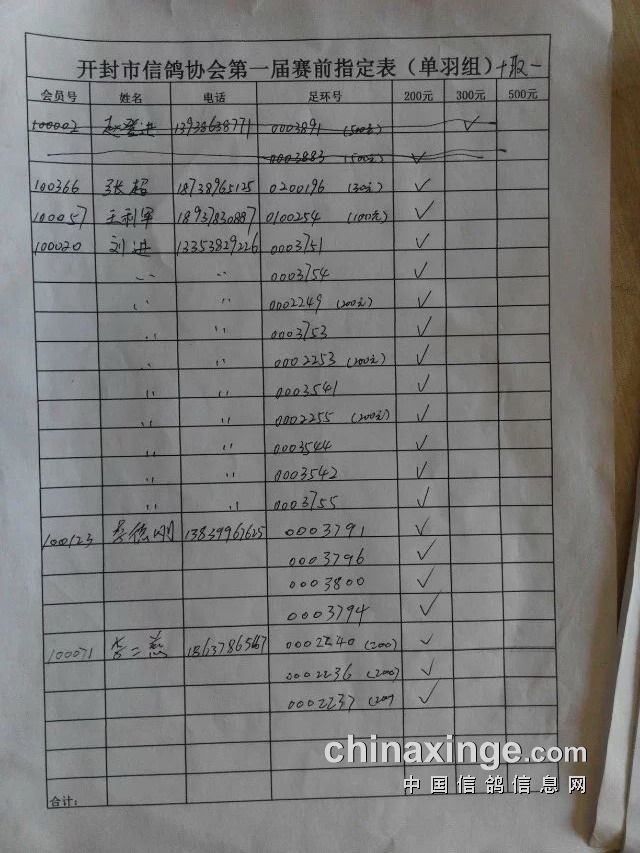 开封市信鸽协会第一届赛前指定表（单羽组）十取一
会员号 姓名 电话 足环号 200元 300元 500元
100002 赵登进 13938638771 0003891 (500元) ✓
0003883 (500元) ✓
100366 张超 18738965125 0200196 (30元) ✓
100057 王利军 18937830887 0100254 (100元) ✓
100020 刘进 13353829226 0003751 ✓
〃 〃 0003754 ✓
〃 〃 0002249 (200元) ✓
〃 〃 0003753 ✓
〃 〃 0002253 (200元) ✓
〃 〃 0003541 ✓
〃 〃 0002255 (200元) ✓
〃 〃 0003544 ✓
〃 〃 0003542 ✓
〃 〃 0003755 ✓
100123 李德刚 13839967625 0003791 ✓
0003796 ✓
0003800 ✓
0003794 ✓
100071 李二燕 0002240 (200) ✓
0002236 (200) ✓
0002237 (200 ✓
合计：
chinaxinge.com
中国信鸽信息网